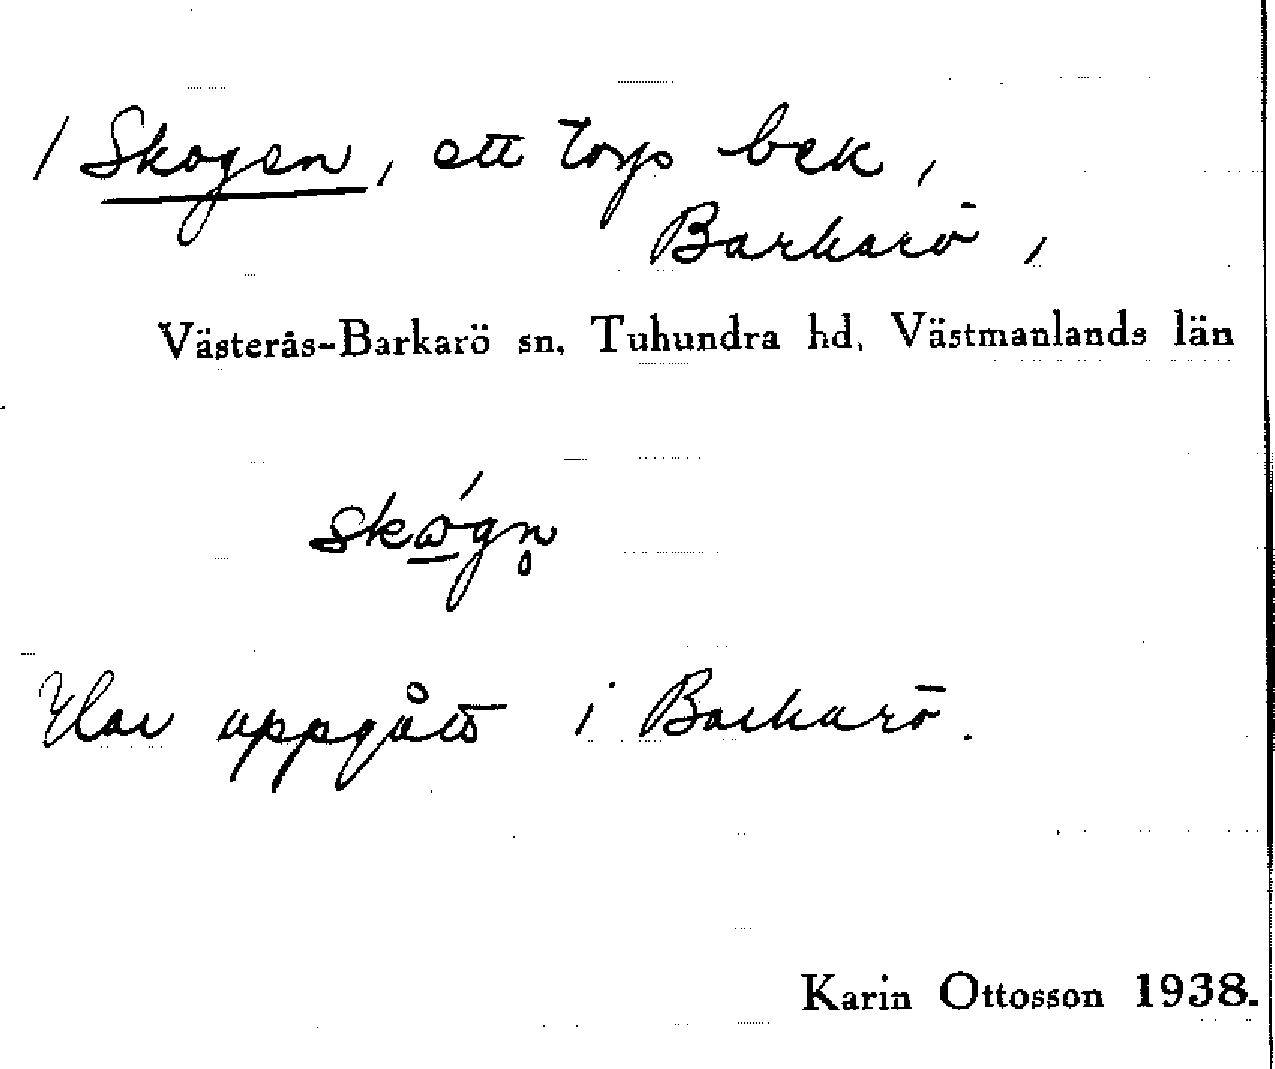 / Skogen, ett torp bek,
Barkarö,
Västerås-Barkarö sn, Tuhundra hd, Västmanlands län
skógn̥
Har uppgått i Barkarö.
Karin Ottosson 1938.